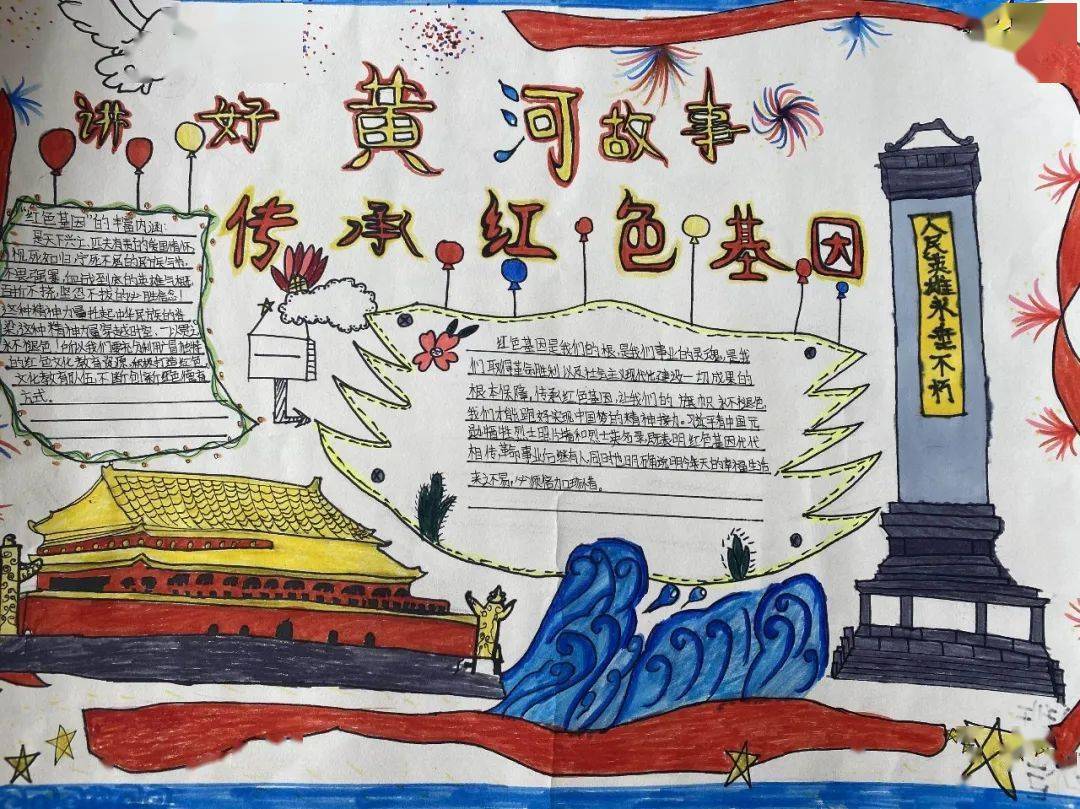 讲好黄河故事
传承红色基因
"红色基因"的丰富内涵:
是天下兴亡、匹夫有责的爱国情怀
视死如归、宁死不屈的民族气节
不畏强暴、血战到底的英雄气概
百折不挠、坚忍不拔的必胜信念
这种精神力量扛起中华民族的脊
梁这种精神力量穿越时空、
永不褪色!所以我们要充分利用
的红色文化教育资源,积极打造红色
文化教育队伍,不断创新红色德育
方式。
红色基因是我们的根,是我们事业的灵魂,是我
们取得革命胜利以及社会主义现代化建设一切成果的
根本保障,传承红色基因,让我们的旗帜永不褪色
我们才能跑好实现中国梦的精神接力。习近平看中国元
勋牺牲烈士照片墙和烈士英名录,既表明红色基因代代
相传革命事业后继有人同时也明确说明今天的幸福生活
来之不易,必须倍加珍惜。
人民英雄永垂不朽